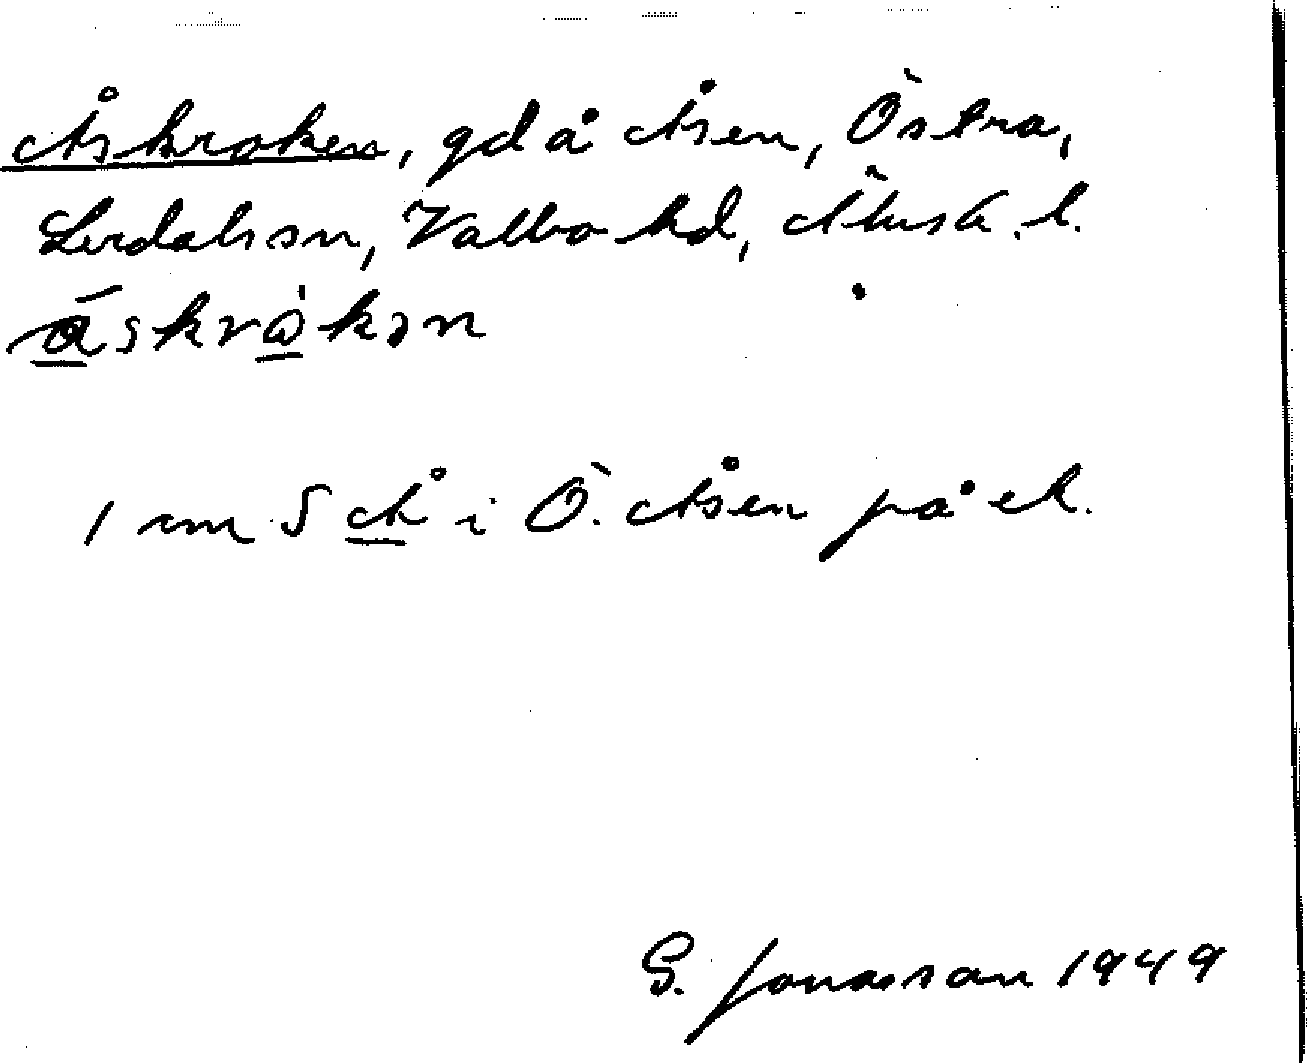 Åskroken, gd å Åsen, Östra,
Lerdals sn, Valbo hd, Älvsb. l.
åskròkən
1 cm S Å i Ö. Åsen på ek.
G. Jonasson 1949